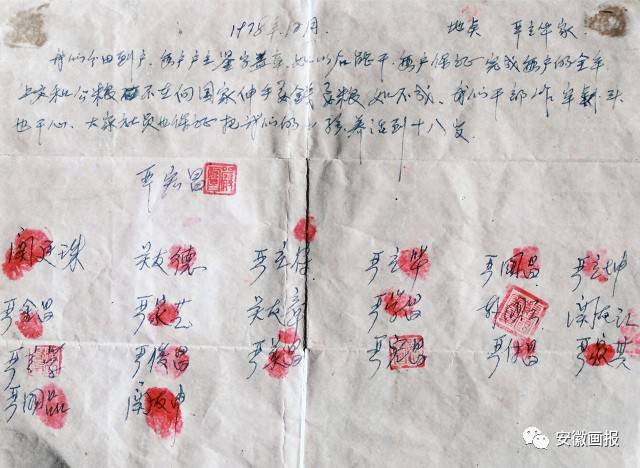 1978年12月. 地点 严立华家
我们分田到户,每户户主签字盖章,如以后能干,每户保证完成每户的全年
上交和公粮 不在向国家伸手要钱要粮 如不成,我们干部作牢刹头
也干心,大家社员也保证把我们的小孩养活到十八岁.
严宏昌
关廷珠 关友德 严立符 严立华 严国昌 严立坤
严金昌 严家芝 关友章 严学昌 关友江
严立学 严俊昌 严美昌 严宏昌 严付昌 严家其
严国品 关友申
安徽画报